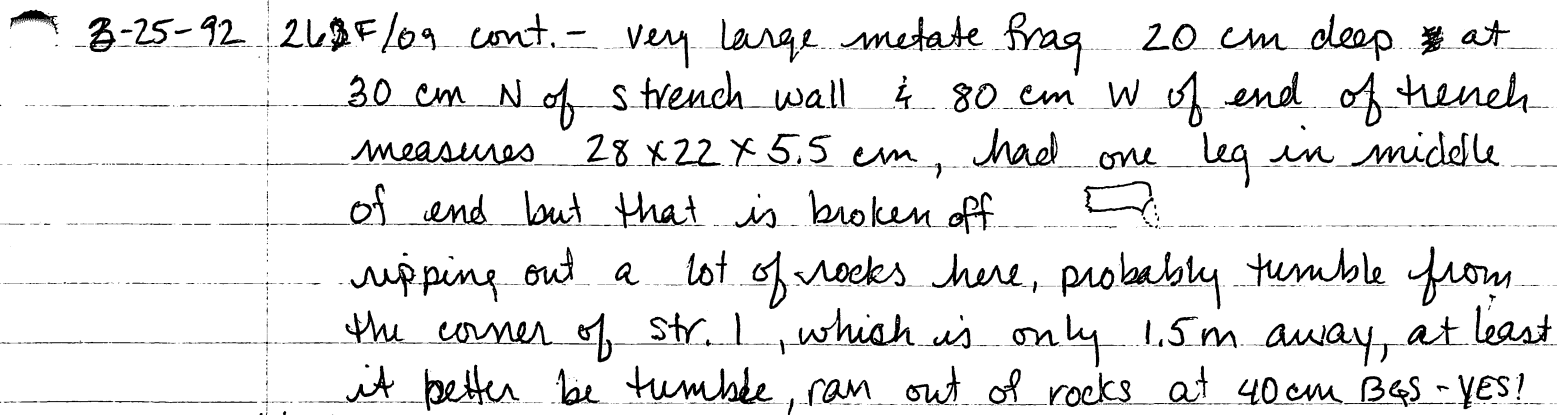 3-25-92 262F/09 cont. - very large metate frag 20 cm deep at
30 cm N of s trench wall & 80 cm W of end of trench
measures 28 x 22 x 5.5 cm, had one leg in middle
of end but that is broken off
ripping out a lot of rocks here, probably tumble from
the corner of Str. 1, which is only 1.5m away, at least
it better be tumble, ran out of rocks at 40cm BGS - YES!